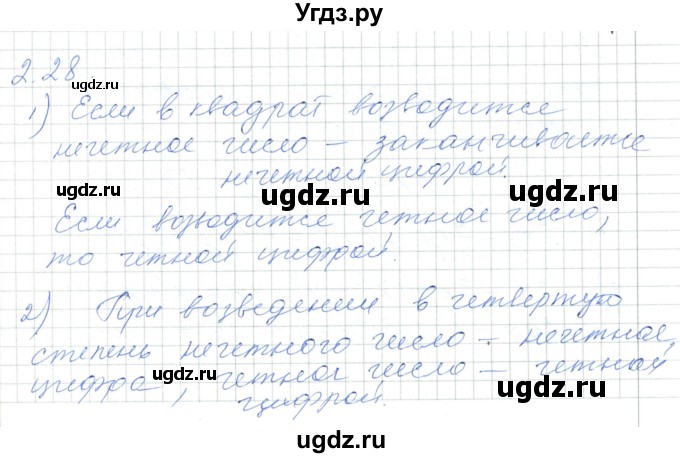 Угдз.ру
2.28
угдз.ру
1) Если в квадрат возводится
нечетное число – заканчивается
угдз.ру
нечетной цифрой.
ugdz.ru
ugdz.ru
Если возводится четное число,
то четной цифрой.
ugdz.ru
ugdz.ru
2) При возведении в четвертую
степень нечетного число - нечетное,
цифра, четное число – четной
угдз.ру
ugdz.ru
цифрой.
ugdz.ru